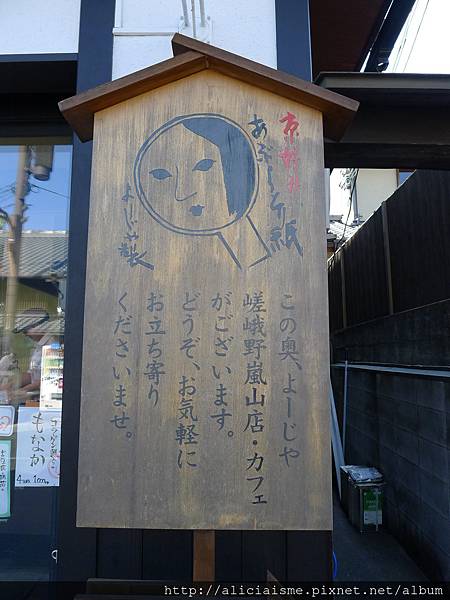 京都
あぶらとり紙
よーじや製
この奥、よーじや
嵯峨野嵐山店・カフェ
がございます。
どうぞ、お気軽に
お立ち寄り
くださいませ。
もなか
http://aliciaisme.pixnet.net/album